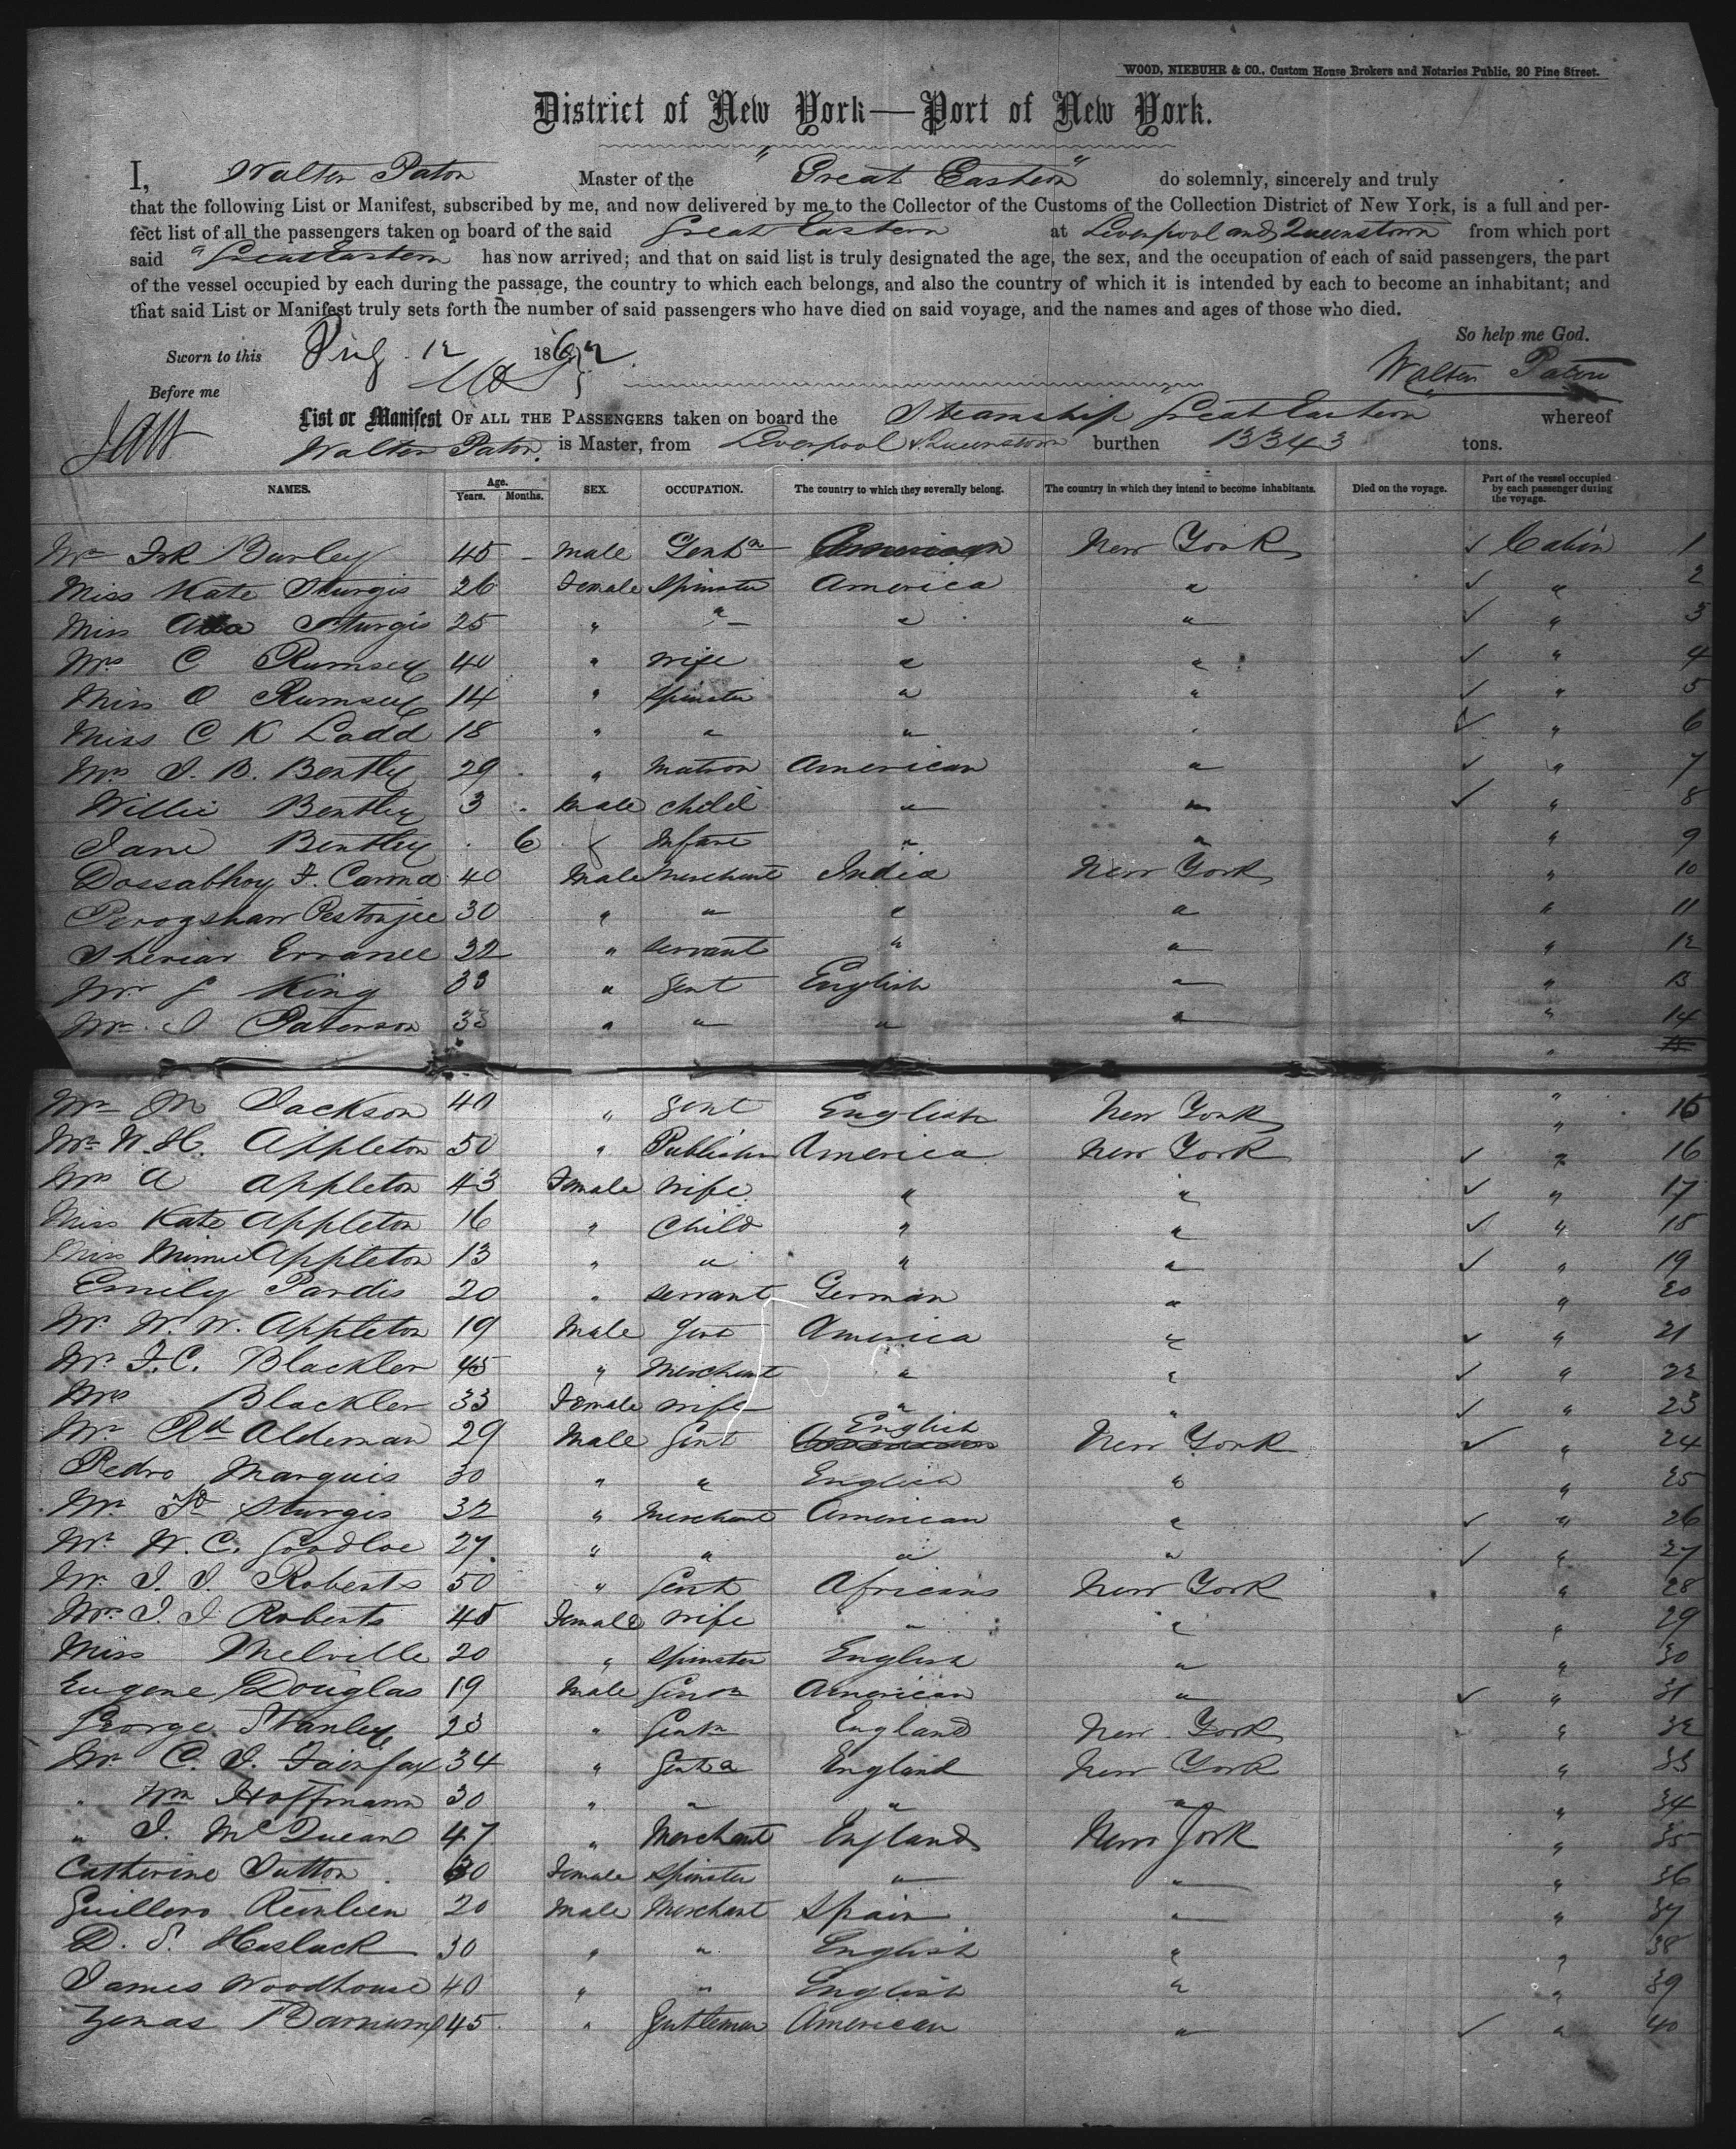 WOOD, NIEBUHR & CO., Custom House Brokers and Notaries Public, 20 Pine Street.
District of New York—Port of New York.
I, Walter Paton Master of the "Great Eastern" do solemnly, sincerely and truly
that the following List or Manifest, subscribed by me, and now delivered by me to the Collector of the Customs of the Collection District of New York, is a full and per-
fect list of all the passengers taken on board of the said Great Eastern at Liverpool and Queenstown from which port
said "Great Eastern" has now arrived; and that on said list is truly designated the age, the sex, and the occupation of each of said passengers, the part
of the vessel occupied by each during the passage, the country to which each belongs, and also the country of which it is intended by each to become an inhabitant; and
that said List or Manifest truly sets forth the number of said passengers who have died on said voyage, and the names and ages of those who died.
So help me God.
Sworn to this Aug. 12 1862 Walter Paton
Before me
List or Manifest OF ALL THE PASSENGERS taken on board the Steamship "Great Eastern" whereof
Walter Paton is Master, from Liverpool & Queenstown burthen 13343 tons.
NAMES. Age. Years. Months. SEX. OCCUPATION. The country to which they severally belong. The country in which they intend to become inhabitants. Died on the voyage. Part of the vessel occupied by each passenger during the voyage.
Mr Burley 45 - Male Gentn American New York ✓ Cabin 1
Miss Kate Sturgis 26 Female Spinster America " ✓ " 2
Miss Sturgis 25 " " " " ✓ " 3
Mrs C Rumsey 40 " wife " " ✓ " 4
Miss O Rumsey 14 " spinster " " ✓ " 5
Miss C K Ladd 18 " " " " ✓ " 6
Mrs J. B. Bentley 29 " Matron American " ✓ " 7
Willie Bentley 3 Male child " " ✓ " 8
Jane Bentley 6 Infant " " " 9
Dossabhoy F. Cama 40 Male Merchant India New York " 10
Perozshaw Pestonjee 30 " " " " " 11
Sheriar Erranee 32 " servant " " " 12
Mr J King 33 " Gent English " " 13
Mr J Paterson 33 " " " " " 14
Mr M Jackson 40 " Gent English New York " 15
Mr W. H. Appleton 50 " Publisher America New York ✓ " 16
Mrs A Appleton 43 Female Wife " " ✓ " 17
Miss Kate Appleton 16 " Child " " ✓ " 18
Miss Minnie Appleton 13 " " " " ✓ " 19
Emily Pardis 20 " servant German " " 20
Mr W. W. Appleton 19 Male Gent America " ✓ " 21
Mr F. C. Blackler 45 " Merchant " " ✓ " 22
Mrs Blackler 33 Female wife " " ✓ " 23
Mr Rd Aldeman 29 Male Gent English New York ✓ " 24
Pedro Marquis 30 " " English " " 25
Mr Sturgis 32 " Merchant American " ✓ " 26
Mr W. C. Goodloe 27 " " " " ✓ " 27
Mr J. J. Roberts 50 " Gent African New York " 28
Mrs J. J Roberts 45 Female wife " " " 29
Miss Melville 20 " spinster English " " 30
Eugene Douglas 19 Male Gentn American " ✓ " 31
George Stanley 23 " Gentn England New York " 32
Mr C. J. Fairfax 34 " Gentn England New York " 33
" Wm Hoffmann 30 " " " " " 34
" J. McQuean 47 " Merchant England New York " 35
Catherine Sutton 30 Female Spinster " " " 36
Guillero 20 Male Merchant Spain " " 37
D. S. Haslack 30 " " English " " 38
James Woodhouse 40 " " English " " 39
Zenas Barnum 45 " Gentleman American " ✓ " 40